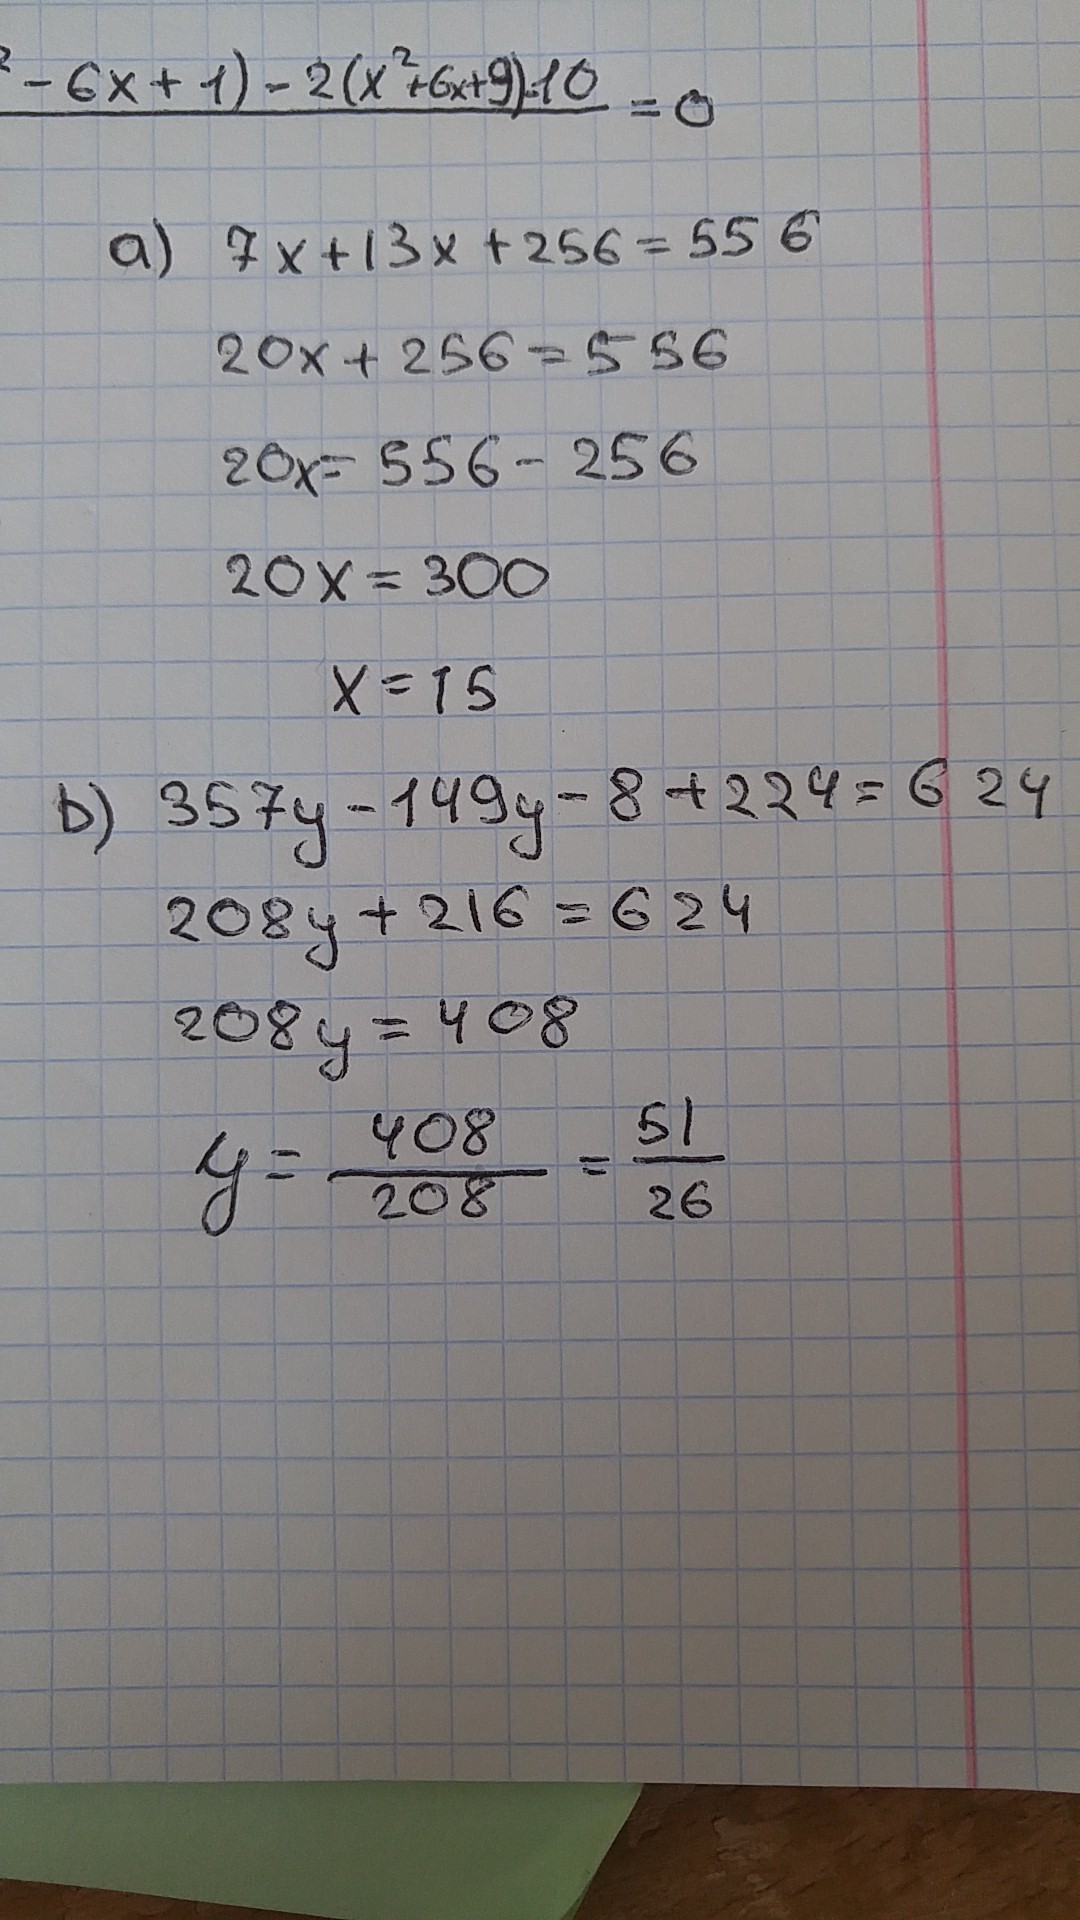 ² - 6x + 1) - 2(x²+6x+9)·10 = 0
a) 7x + 13x + 256 = 556
20x + 256 = 556
20x = 556 - 256
20x = 300
x = 15
b) 357y - 149y - 8 + 224 = 624
208y + 216 = 624
208y = 408
y = 408/208 = 51/26